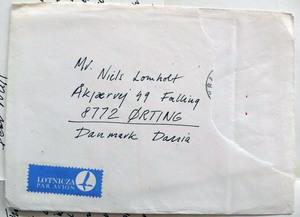 Mr. Niels Lomholt
Akjærvej 49 Falling
8772 ØRTING
Danmark Dania
LOTNICZA
PAR AVION